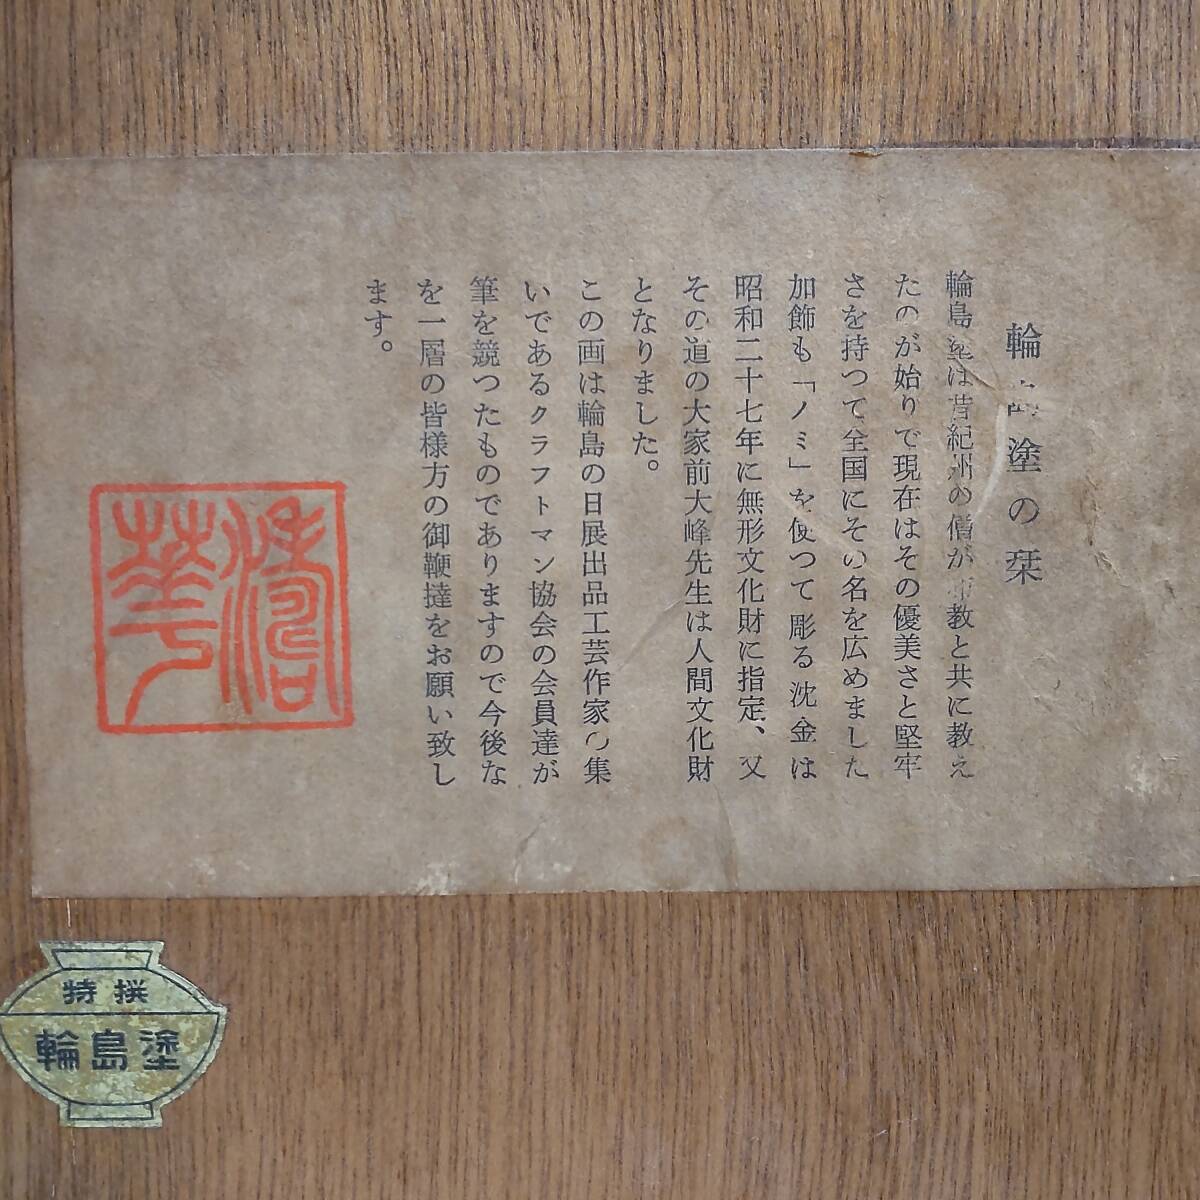 輪島塗の栞
輪島塗は昔紀州の僧が布教と共に教え
たのが始りで現在はその優美さと堅牢
さを持つて全国にその名を広めました
加飾も「ノミ」を使つて彫る沈金は
昭和二十七年に無形文化財に指定、又
その道の大家前大峰先生は人間文化財
となりました。
この画は輪島の日展出品工芸作家の集
いであるクラフトマン協会の会員達が
筆を競つたものでありますので今後な
を一層の皆様方の御鞭撻をお願い致し
ます。
特撰
輪島塗